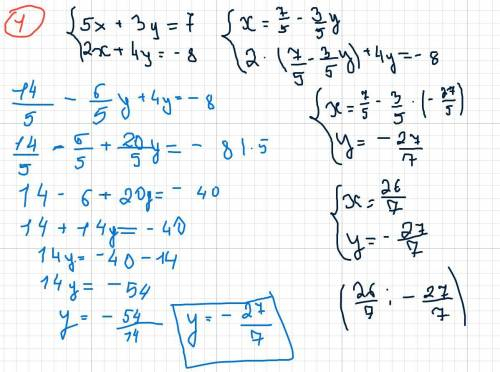 1
{5x + 3y = 7
2x + 4y = -8
{x = 7/5 - 3/5 y
2 · (7/5 - 3/5 y) + 4y = -8
14/5 - 6/5 y + 4y = -8
14/5 - 6/5 + 20/5 y = -8 | · 5
14 - 6 + 20y = -40
14 + 14y = -40
14y = -40 - 14
14y = -54
y = -54/14
y = -27/7
{x = 7/5 - 3/5 · (-27/5)
y = -27/7
{x = 26/7
y = -27/7
(26/7 ; -27/7)